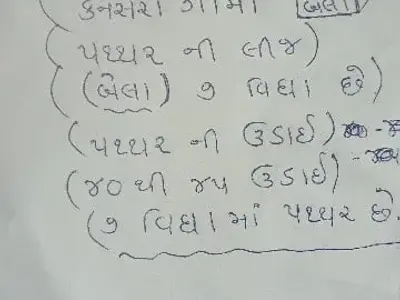 કનસરા ગામમાં [બેલા]
(પથ્થર ની લીજ)
((બેલા) ૭ વિઘા છે)
(પથ્થર ની ઉડાઈ)
(૪૦ થી ૪૫ ઉડાઈ)
(૭ વિઘામાં પથ્થર છે.